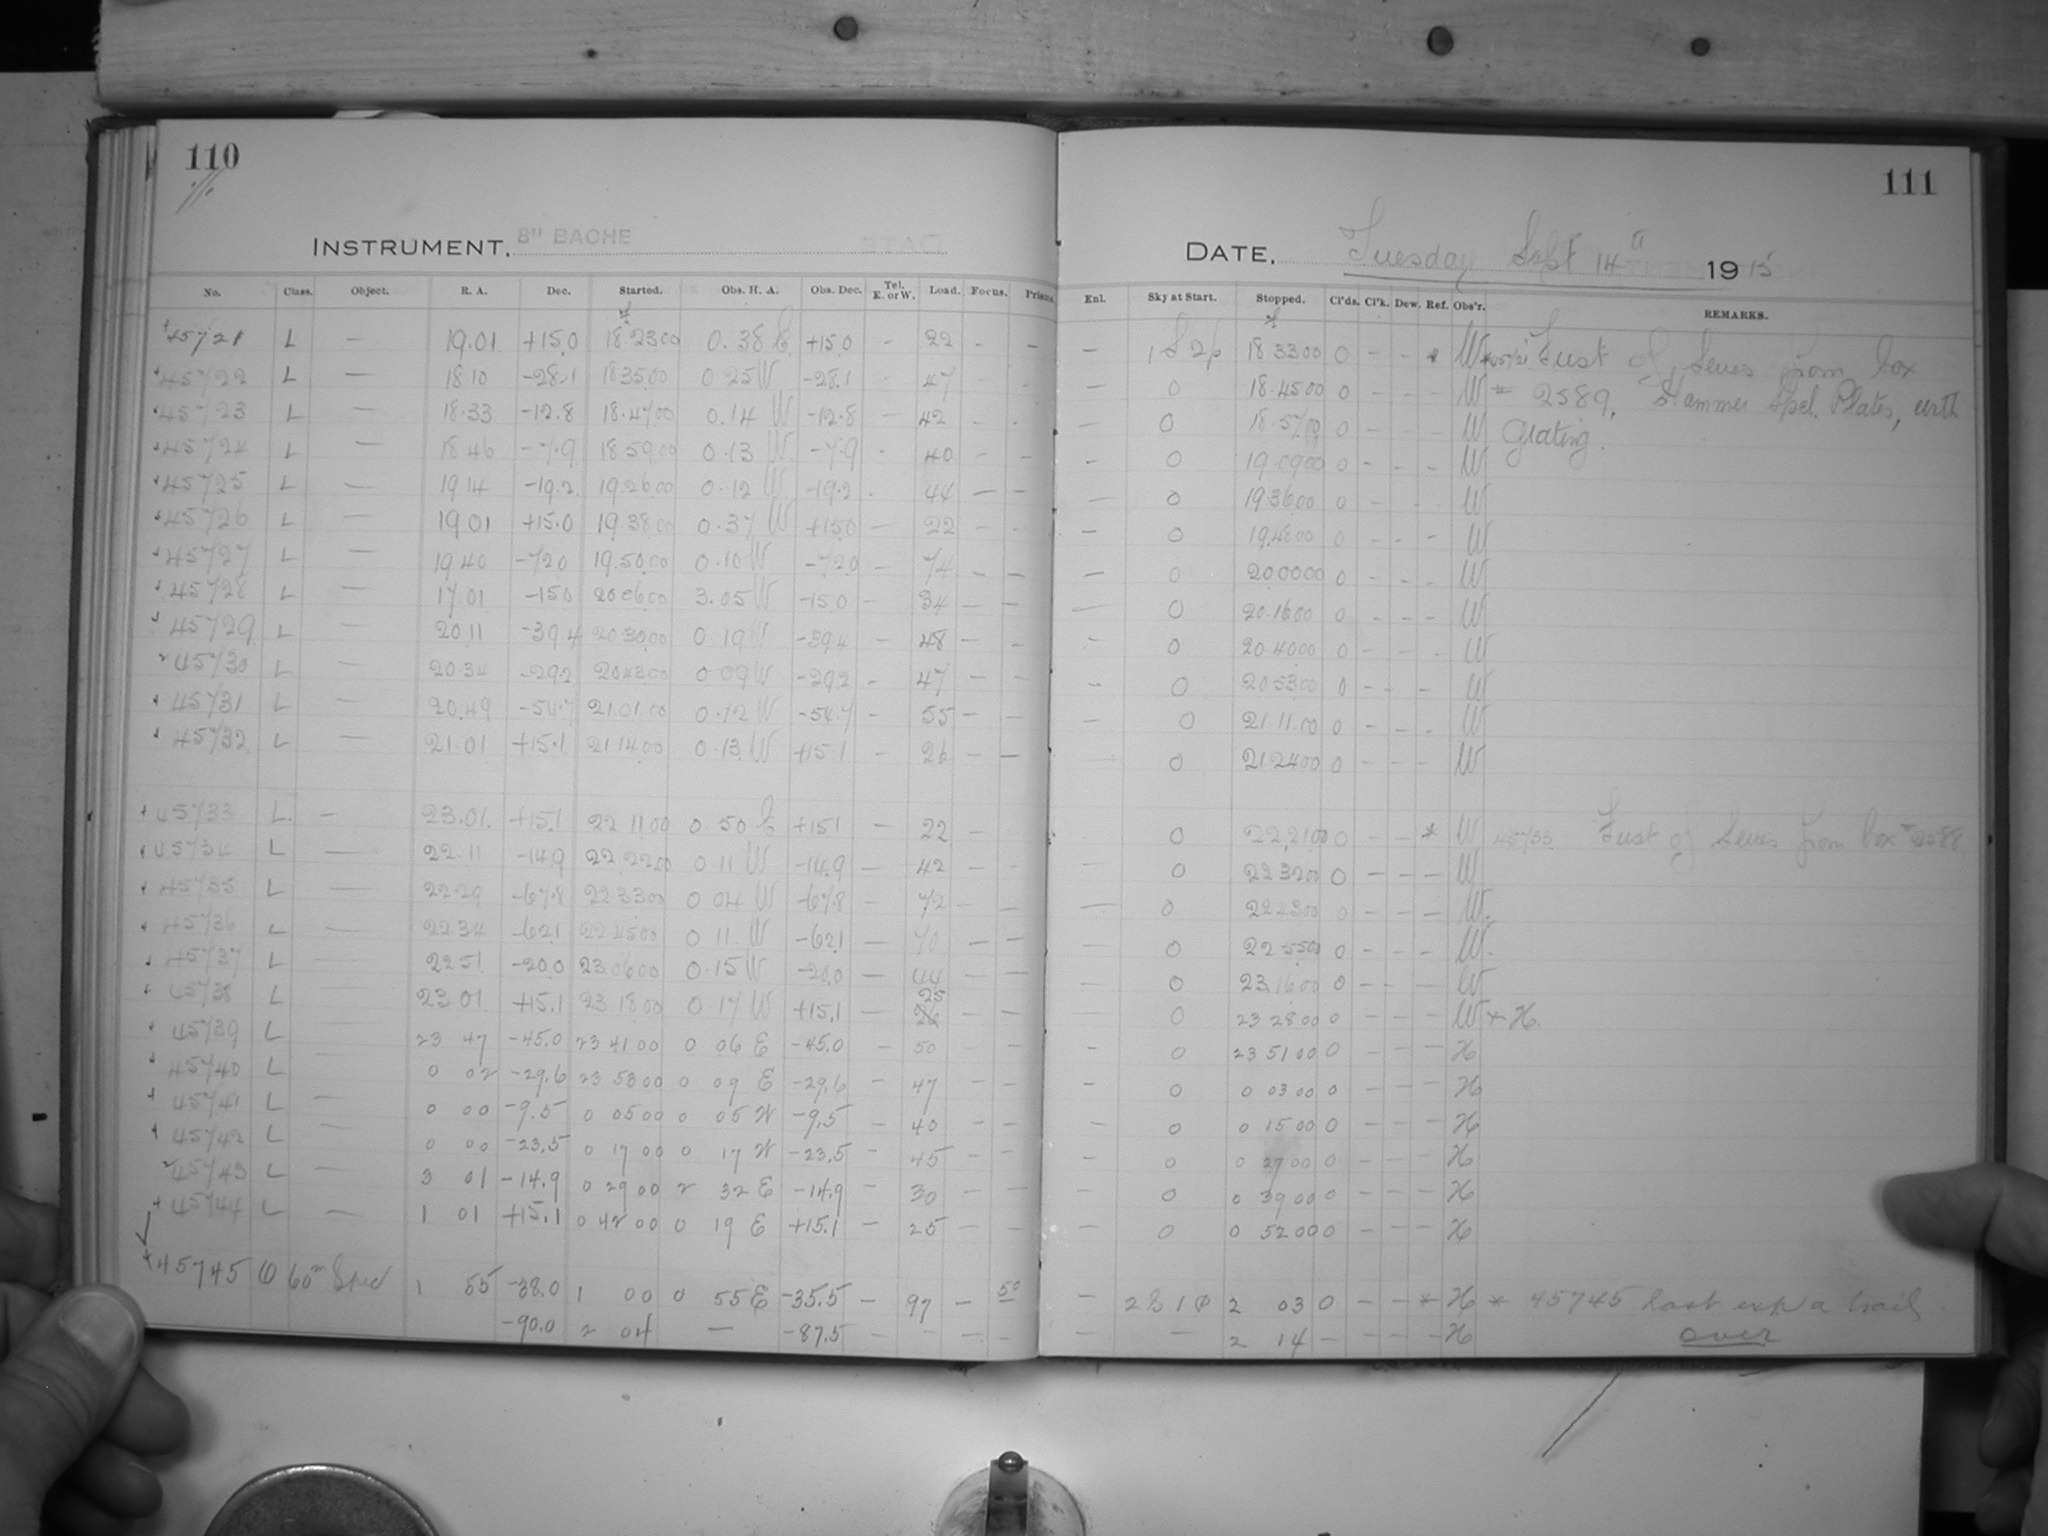 110
INSTRUMENT. 8" BACHE
No. Class. Object. R. A. Dec. Started. Obs. H. A. Obs. Dec. Tel. E. or W. Load. Focus. Prisms
45721 L — 19.01 +15.0 18 23 00 0.38 E +15.0 - 22 - -
45722 L — 18.10 -28.1 18 35 00 0 25 W -28.1 - 47 - -
45723 L — 18.33 -12.8 18.47 00 0.14 W -12.8 - 42 - -
45724 L — 18 46 -7.9 18 59 00 0.13 W -7.9 - 40 - -
45725 L — 19 14 -19.2 19.26 00 0.12 W -19.2 - 44 - -
45726 L — 19 01 +15.0 19.38 00 0.37 W +15.0 - 22 - -
45727 L — 19.40 -72.0 19.50 00 0.10 W -72.0 - 74 - -
45728 L — 17.01 -15.0 20 06 00 3.05 W -15.0 - 34 - -
45729 L — 20 11 -39.4 20 30 00 0 19 W -39.4 - 48 - -
45730 L — 20.34 -29.2 20 43 00 0 09 W -29.2 - 47 - -
45731 L — 20.49 -54.7 21 01 00 0.12 W -54.7 - 55 - -
45732 L — 21.01 +15.1 21 14 00 0.13 W +15.1 - 26 - -
45733 L — 23.01 +15.1 22 11 00 0.50 E +15.1 - 22 -
45734 L — 22.11 -14.9 22 22 00 0 11 W -14.9 - 42 - -
45735 L — 22 29 -67.8 22 33 00 0 04 W -67.8 - 72 - -
45736 L — 22 34 -62.1 22 45 00 0 11 W -62.1 - 70 - -
45737 L — 22 51 -20.0 23 06 00 0.15 W -20.0 - 44 - -
45738 L — 23 01 +15.1 23 18 00 0.17 W +15.1 - 25 - -
45739 L — 23 47 -45.0 23 41 00 0 06 E -45.0 - 50 - -
45740 L — 0 02 -29.6 23 53 00 0 09 E -29.6 - 47 - -
45741 L — 0 00 -9.5 0 05 00 0 05 W -9.5 - 40 - -
45742 L — 0 00 -23.5 0 17 00 0 17 W -23.5 - 45 - -
45743 L — 3 01 -14.9 0 29 00 2 32 E -14.9 - 30 - -
45744 L — 1 01 +15.1 0 42 00 0 19 E +15.1 - 25 - -
45745 60m Spec 1 55 -38.0 1 00 0 55 E -35.5 - 97 - 5°
-90.0 2 04 — -87.5 - - - -
111
DATE. Tuesday Sept 14th 1915
Enl. Sky at Start. Stopped. Cl'ds. Cl'k. Dew. Ref. Obs'r. REMARKS.
- 18 33 00 0 - - * W *45721 First of Series from box
- 0 18.45 00 0 - - - W # 2589, Hammer Spel. Plates, with
- 0 18.57 00 0 - - - W grating.
- 0 19.09 00 0 - - - W
- 0 19 36 00 0 - - W
- 0 19.48 00 0 - - - W
- 0 20 00 00 0 - - - W
- 0 20.16 00 0 - - - W
- 0 20.40 00 0 - - - W
- 0 20 53 00 0 - - - W
- 0 21 11.00 0 - - - W
0 21.24 00 0 - - - W
0 22.21 00 0 - - * W 45733 First of Series from box #2588
0 22 32 00 0 - - - W
- 0 22 43 00 0 - - - W.
- 0 22 55 00 0 - - - W.
0 23.16 00 0 - - - W
0 23 28 00 0 - - - W + H.
- 0 23 51 00 0 - - - H
- 0 0 03 00 0 - - - H
- 0 0 15 00 0 - - - H
- 0 0 27 00 0 - - - H
- 0 0 39 00 0 - - - H
- 0 0 52 00 0 - - - H
- 2 03 0 - - * H * 45745 last exp a trail
- - 2 14 - - - - H over